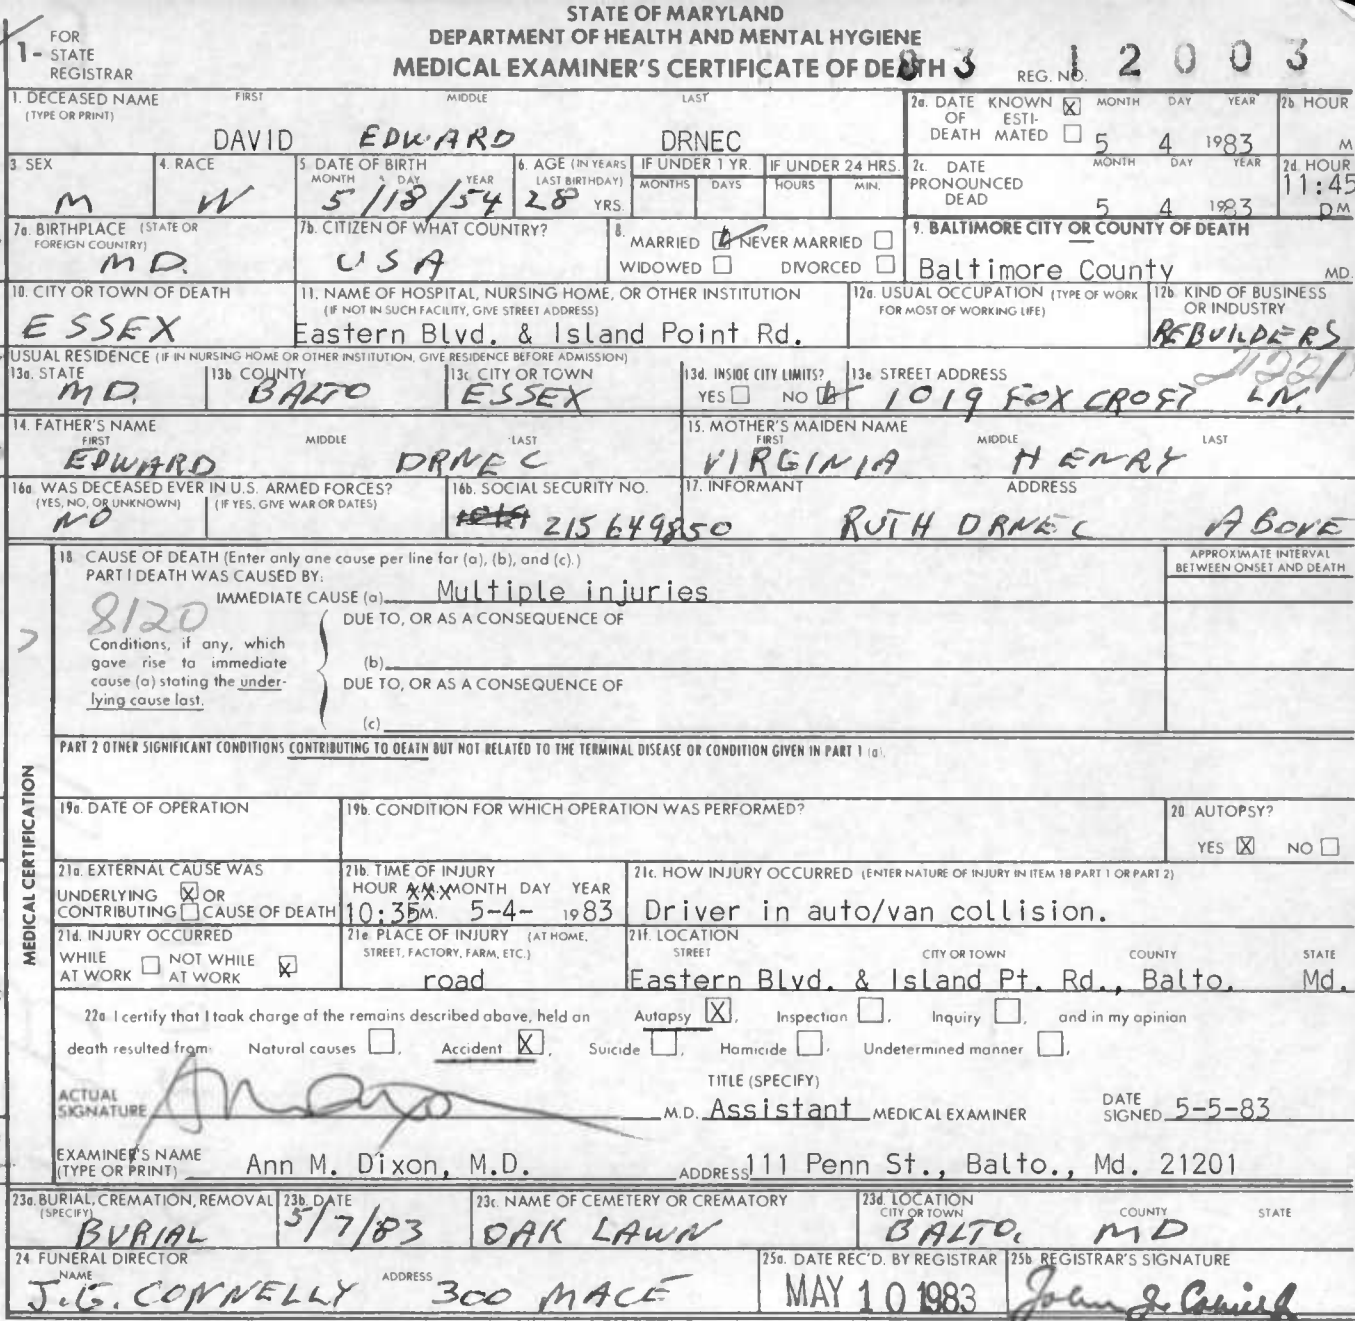 STATE OF MARYLAND
DEPARTMENT OF HEALTH AND MENTAL HYGIENE
MEDICAL EXAMINER'S CERTIFICATE OF DEATH
1- FOR STATE REGISTRAR
REG. NO. 83 12003
1. DECEASED NAME (TYPE OR PRINT) FIRST MIDDLE LAST
DAVID EDWARD DRNEC
2a. DATE OF DEATH KNOWN X ESTIMATED MONTH DAY YEAR 5 4 1983
2b HOUR M
3 SEX M
4. RACE W
5. DATE OF BIRTH MONTH DAY YEAR 5/18/54
6. AGE (IN YEARS LAST BIRTHDAY) 28 YRS.
IF UNDER 1 YR. MONTHS DAYS
IF UNDER 24 HRS. HOURS MIN.
2c. DATE PRONOUNCED DEAD MONTH DAY YEAR 5 4 1983
2d. HOUR 11:45 PM
7a. BIRTHPLACE (STATE OR FOREIGN COUNTRY) MD.
7b. CITIZEN OF WHAT COUNTRY? USA
8. MARRIED NEVER MARRIED
WIDOWED DIVORCED
9. BALTIMORE CITY OR COUNTY OF DEATH
Baltimore County MD.
10. CITY OR TOWN OF DEATH
ESSEX
11. NAME OF HOSPITAL, NURSING HOME, OR OTHER INSTITUTION
(IF NOT IN SUCH FACILITY, GIVE STREET ADDRESS)
Eastern Blvd. & Island Point Rd.
12a. USUAL OCCUPATION (TYPE OF WORK FOR MOST OF WORKING LIFE)
12b. KIND OF BUSINESS OR INDUSTRY
REBUILDERS
USUAL RESIDENCE (IF IN NURSING HOME OR OTHER INSTITUTION, GIVE RESIDENCE BEFORE ADMISSION)
13a. STATE MD.
13b COUNTY BALTO
13c CITY OR TOWN ESSEX
13d. INSIDE CITY LIMITS? YES NO
13e STREET ADDRESS 21221
1019 FOX CROFT LN.
14. FATHER'S NAME FIRST MIDDLE LAST
EDWARD DRNEC
15. MOTHER'S MAIDEN NAME FIRST MIDDLE LAST
VIRGINIA HENRY
16a. WAS DECEASED EVER IN U.S. ARMED FORCES?
(YES, NO, OR UNKNOWN) (IF YES, GIVE WAR OR DATES)
NO
16b. SOCIAL SECURITY NO.
215649850
17. INFORMANT ADDRESS
RUTH DRNEC ABOVE
MEDICAL CERTIFICATION
18 CAUSE OF DEATH (Enter only one cause per line for (a), (b), and (c).)
APPROXIMATE INTERVAL BETWEEN ONSET AND DEATH
PART I DEATH WAS CAUSED BY:
IMMEDIATE CAUSE (a) Multiple injuries
8120
DUE TO, OR AS A CONSEQUENCE OF
Conditions, if any, which gave rise to immediate cause (a) stating the underlying cause last.
(b)
DUE TO, OR AS A CONSEQUENCE OF
(c)
PART 2 OTHER SIGNIFICANT CONDITIONS CONTRIBUTING TO DEATH BUT NOT RELATED TO THE TERMINAL DISEASE OR CONDITION GIVEN IN PART 1 (a).
19a. DATE OF OPERATION
19b. CONDITION FOR WHICH OPERATION WAS PERFORMED?
20 AUTOPSY?
YES X NO
21a. EXTERNAL CAUSE WAS
UNDERLYING X OR
CONTRIBUTING CAUSE OF DEATH
21b. TIME OF INJURY
HOUR MONTH DAY YEAR
10:35 M. 5-4- 1983
21c. HOW INJURY OCCURRED (ENTER NATURE OF INJURY IN ITEM 18 PART 1 OR PART 2)
Driver in auto/van collision.
21d. INJURY OCCURRED
WHILE AT WORK NOT WHILE AT WORK X
21e PLACE OF INJURY (AT HOME, STREET, FACTORY, FARM, ETC.)
road
21f. LOCATION STREET CITY OR TOWN COUNTY STATE
Eastern Blvd. & Island Pt. Rd., Balto. Md.
22a I certify that I took charge of the remains described above, held an Autopsy X, Inspection, Inquiry, and in my opinion
death resulted from: Natural causes, Accident X, Suicide, Homicide, Undetermined manner,
ACTUAL SIGNATURE
M.D.
TITLE (SPECIFY) Assistant MEDICAL EXAMINER
DATE SIGNED 5-5-83
EXAMINER'S NAME (TYPE OR PRINT) Ann M. Dixon, M.D.
ADDRESS 111 Penn St., Balto., Md. 21201
23a. BURIAL, CREMATION, REMOVAL (SPECIFY) BURIAL
23b. DATE 5/7/83
23c. NAME OF CEMETERY OR CREMATORY
OAK LAWN
23d. LOCATION CITY OR TOWN COUNTY STATE
BALTO. MD
24 FUNERAL DIRECTOR
NAME ADDRESS
J.G. CONNELLY 300 MACE
25a. DATE REC'D. BY REGISTRAR
MAY 10 1983
25b. REGISTRAR'S SIGNATURE